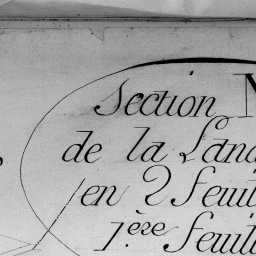 Section N
de la Land
en 2 feuil
1ère feuil